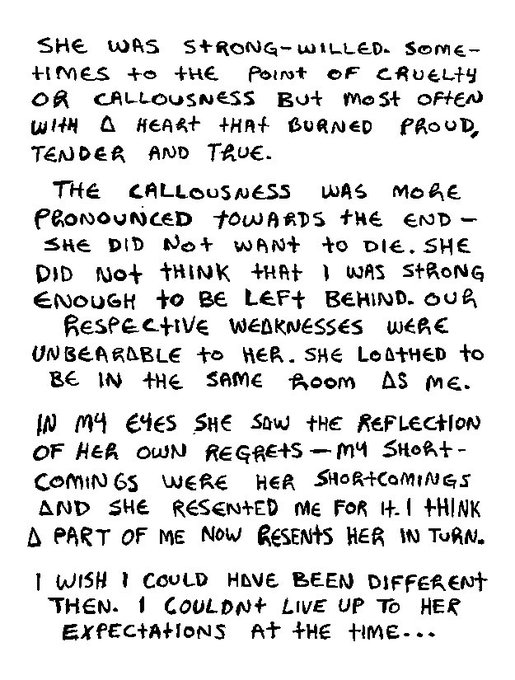 SHE WAS STRONG-WILLED. SOME-
TIMES TO THE POINT OF CRUELTY
OR CALLOUSNESS BUT MOST OFTEN
WITH A HEART THAT BURNED PROUD,
TENDER AND TRUE.
THE CALLOUSNESS WAS MORE
PRONOUNCED TOWARDS THE END -
SHE DID NOT WANT TO DIE. SHE
DID NOT THINK THAT I WAS STRONG
ENOUGH TO BE LEFT BEHIND. OUR
RESPECTIVE WEAKNESSES WERE
UNBEARABLE TO HER. SHE LOATHED TO
BE IN THE SAME ROOM AS ME.
IN MY EYES SHE SAW THE REFLECTION
OF HER OWN REGRETS - MY SHORT-
COMINGS WERE HER SHORTCOMINGS
AND SHE RESENTED ME FOR IT. I THINK
A PART OF ME NOW RESENTS HER IN TURN.
I WISH I COULD HAVE BEEN DIFFERENT
THEN. I COULDNT LIVE UP TO HER
EXPECTATIONS AT THE TIME...